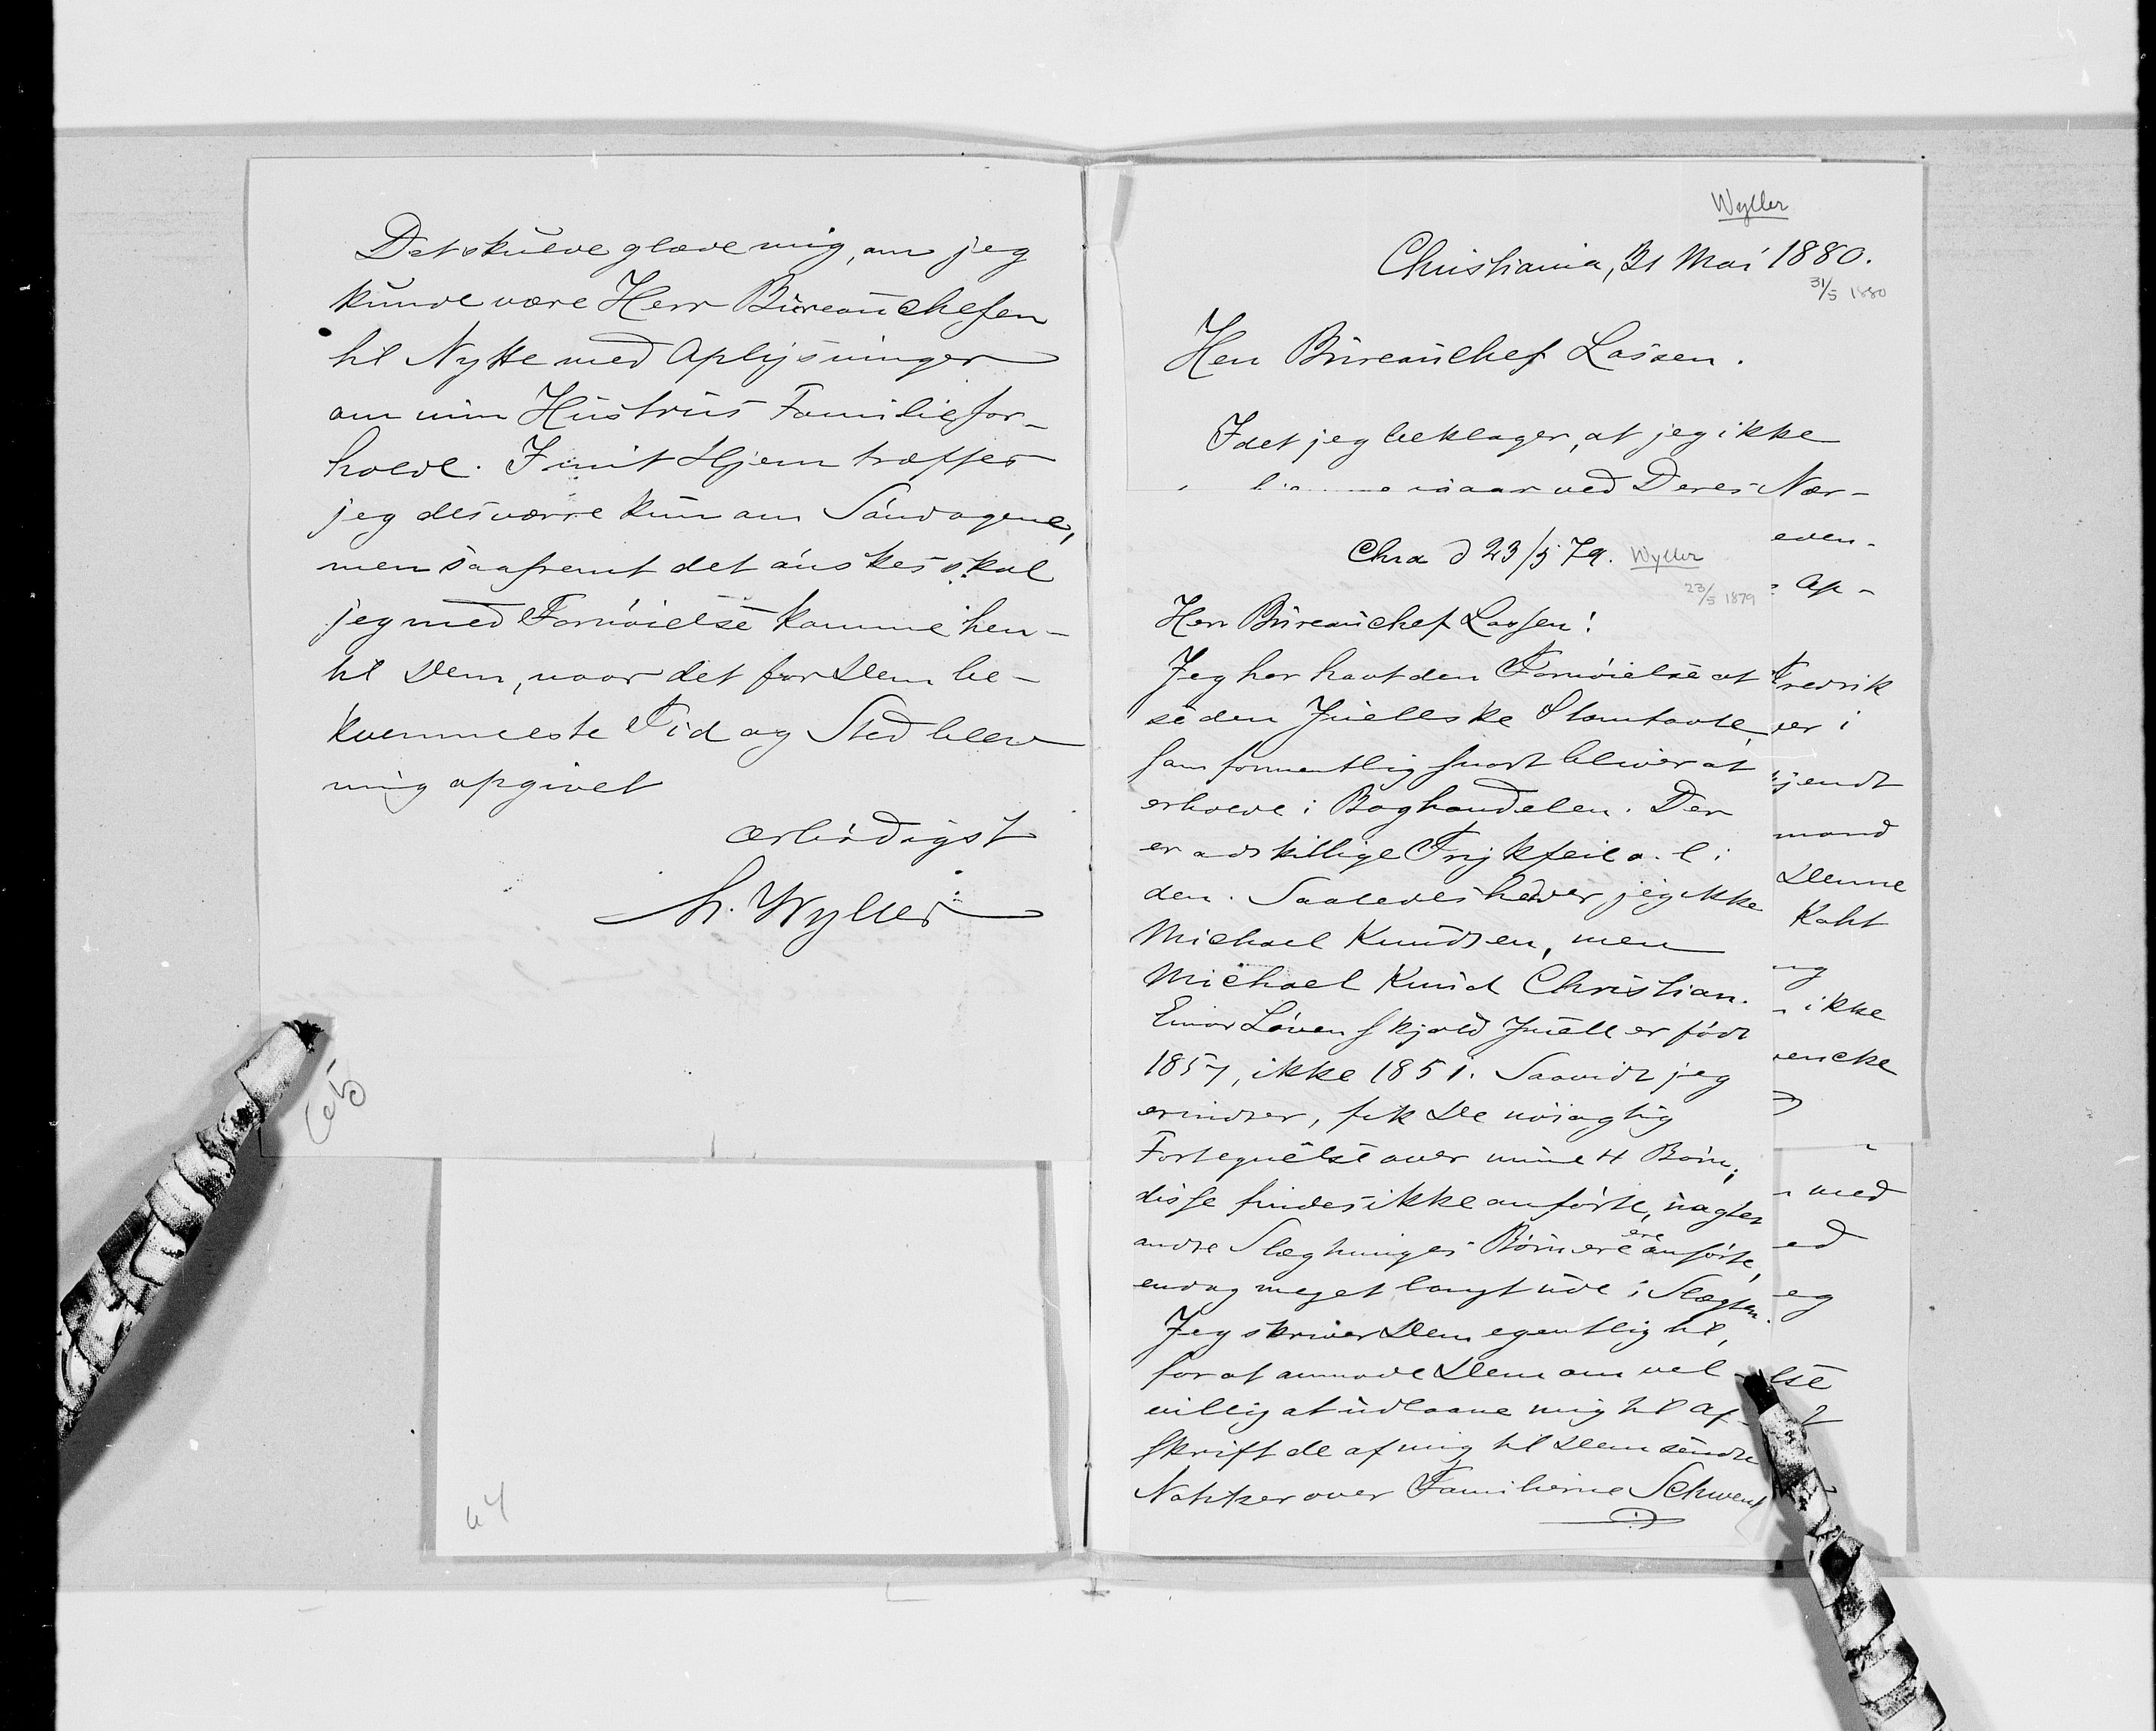 Det skulde glæde mig, om jeg
kunde være Herr Bureauchefen
til Nytte med Oplysninger
om min Hustrus Familiefor-
holde. I mit Hjem træffes
jeg desværre kun om Søndagene,
men saafremt det ønskes skal
jeg med Fornøielse komme hen-
til Dem, naar det for Dem be-
kvemmeste Tid og Sted blev
mig opgivet
ærbødigst
M. Wyller
64
Wyller
Christiania, 31 Mai 1880.
31/5 1880
Herr Bureauchef Lassen.
Idet jeg beklager, at jeg ikke
ved Deres Nær-
Chra d 23/5 79. Wyller
23/5 1879
Herr Bureauchef Lassen!
Jeg har havt den Fornøielse at
se den Juellske Stamtavle,
som formentlig snart bliver at
erholde i Boghandelen. Der
er adskillige Trykfeil o. l. i
den. Saaledes heder jeg ikke
Michael Knudsen, men
Michael Knud Christian.
Einar Løvenskjold Juell er født
1857, ikke 1851. Saavidt jeg
erindrer, fik De nøiagtig
Fortegnelse over mine 4 Børn;
disse findes ikke anførte, uagtet
andre Slægtninges Børn ere anførte,
endog meget langt ude i Slægten.
Jeg skriver Dem egentlig til,
for at anmode Dem om vel-
villig at udlaane mig til Af-
skrift de af mig til Dem sendte
Notitser over Familierne Schwenc
even-
Op-
redrik
er i
jendt
mand
Denne
Kaht
ng
ikke
encke
med
ed
eg
lse